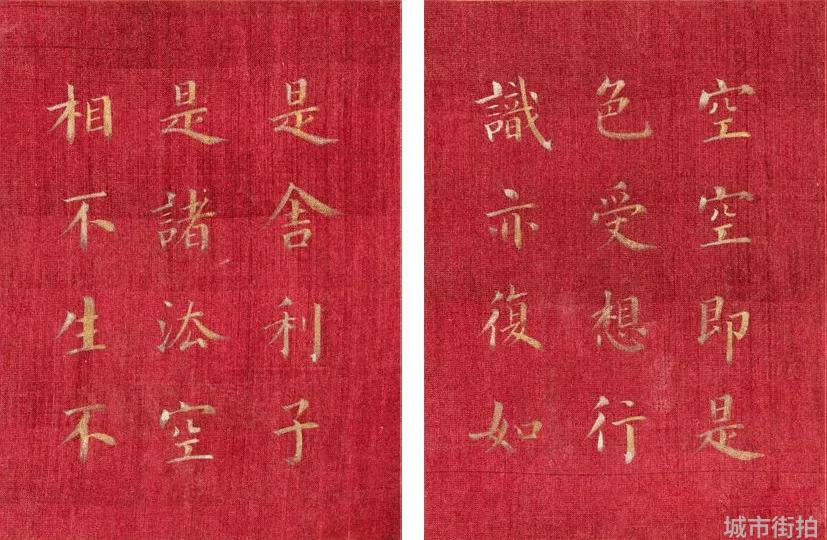 空空即是
色受想行
識亦復如
是舍利子
是諸法空
相不生不
城市街拍